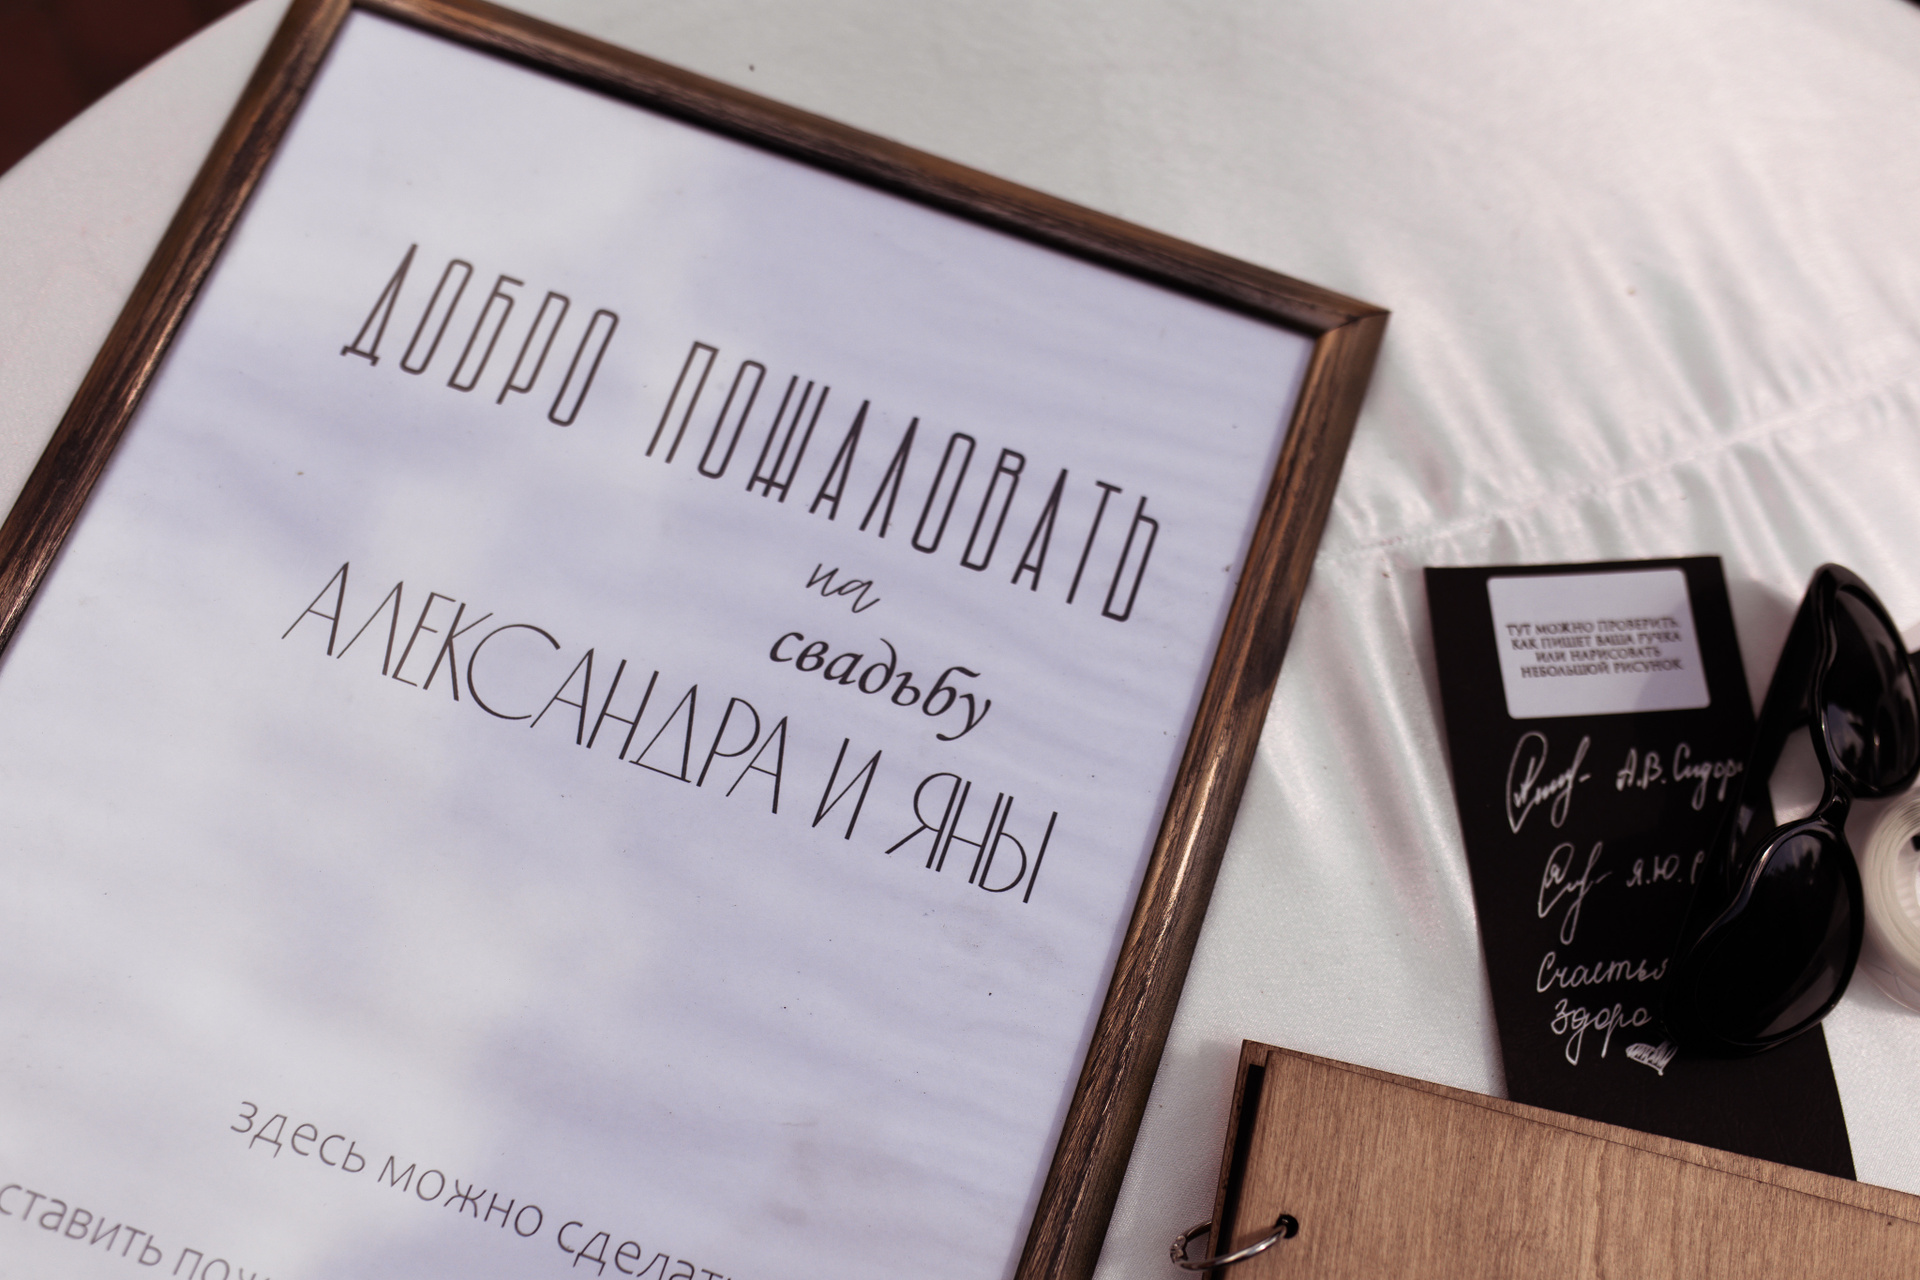 ДОБРО ПОЖАЛОВАТЬ
на
свадьбу
АЛЕКСАНДРА И ЯНЫ
здесь можно
ставить
ТУТ МОЖНО ПРОВЕРИТЬ
КАК ПИШЕТ ВАША РУЧКА
ИЛИ НАРИСОВАТЬ
НЕБОЛЬШОЙ РИСУНОК
А.В.
Я.Ю.
Счастья